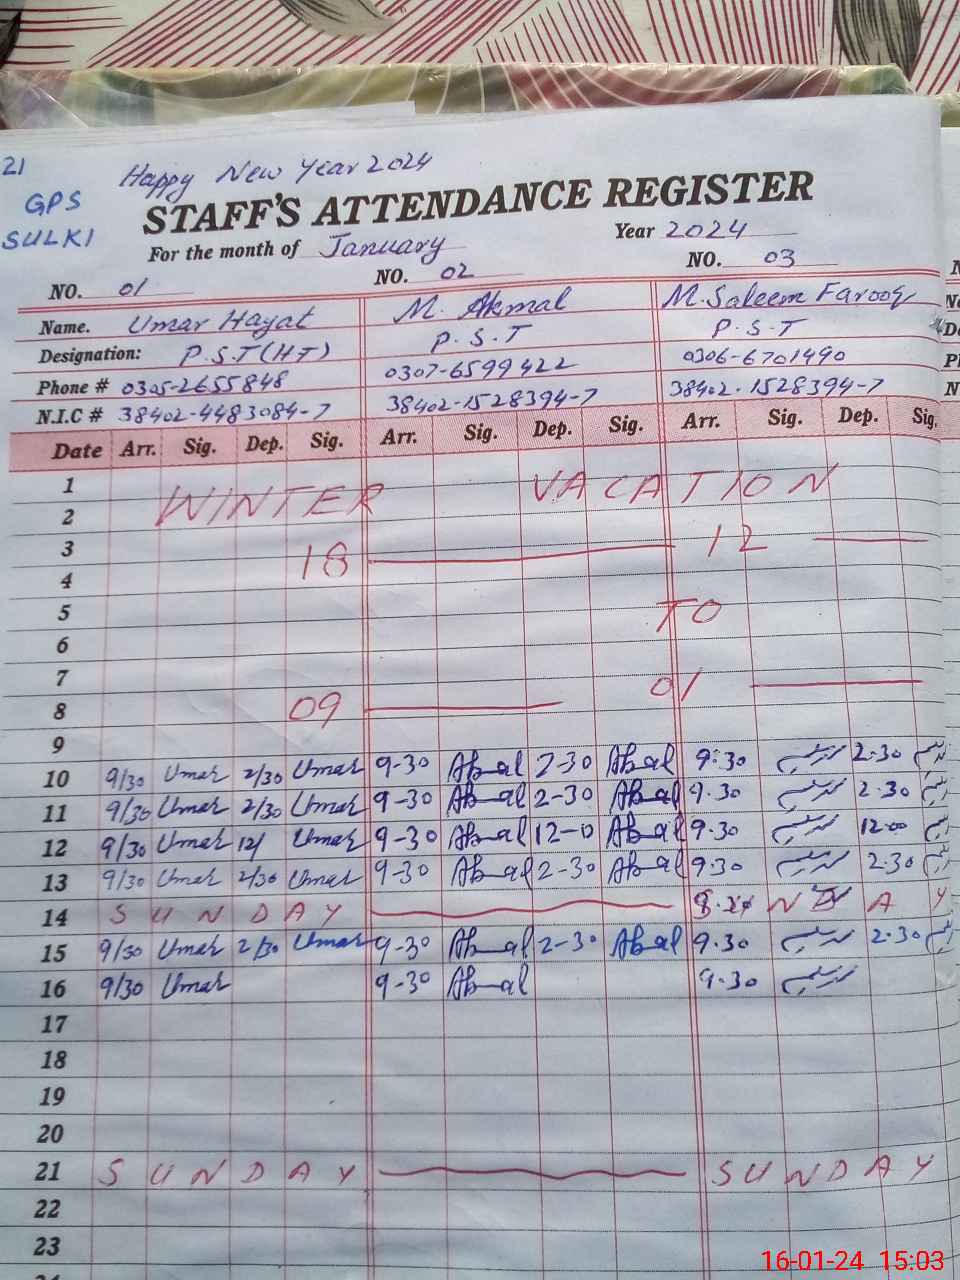 21 Happy New Year 2024
GPS
SULKI
STAFF'S ATTENDANCE REGISTER
For the month of January Year 2024
NO. 01 NO. 02 NO. 03
Name. Umar Hayat M. Akmal M. Saleem Farooq
Designation: P.S.T(HT) P.S.T P.S.T
Phone # 0305-2655848 0307-6599422 0306-6701490
N.I.C # 38402-4483084-7 38402-1528394-7 38402-1528394-7
Date Arr. Sig. Dep. Sig. Arr. Sig. Dep. Sig. Arr. Sig. Dep. Sig.
1 WINTER VACATION
2
3 18 12
4
5 TO
6
7 01
8 09
9
10 9/30 Umar 2/30 Umar 9-30 2-30 9:30 2.30
11 9/30 Umar 2/30 Umar 9-30 2-30 9.30 2.30
12 9/30 Umar 12/ Umar 9-30 12-0 9.30 12.00
13 9/30 Umar 2/30 Umar 9-30 2-30 9.30 2.30
14 SUNDAY N D A Y
15 9/30 Umar 2/30 Umar 9-30 2-30 9.30 2.30
16 9/30 Umar 9-30 9.30
17
18
19
20
21 SUNDAY SUNDAY
22
23
16-01-24 15:03